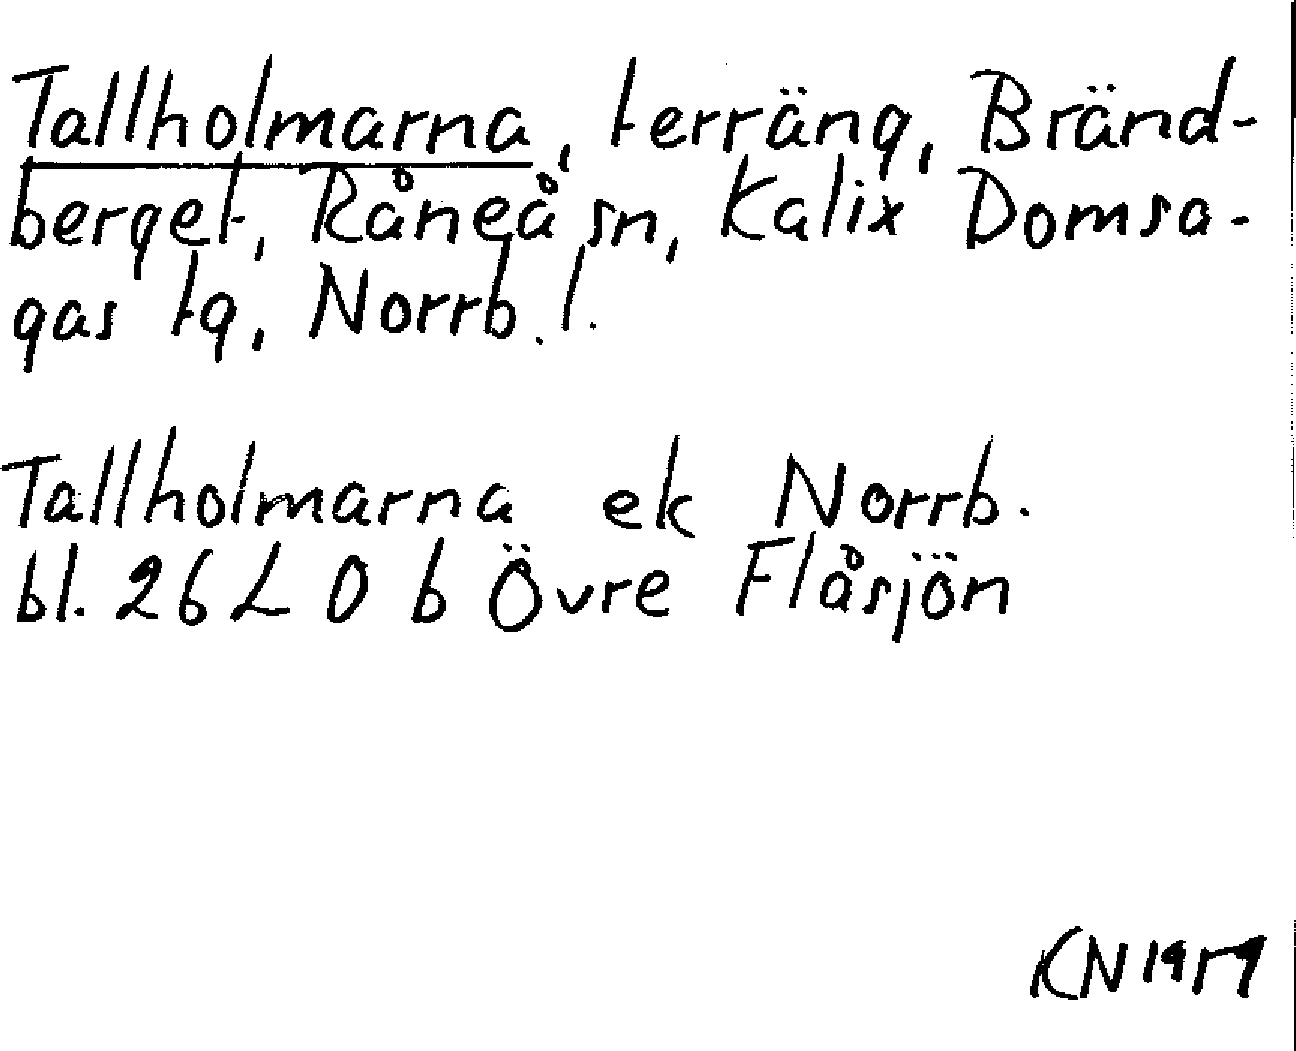 Tallholmarna, terräng, Bränd-
berget, Råneå sn, Kalix Domsa-
gas tg, Norrb. l.
Tallholmarna ek Norrb.
bl. 26 L 0 b Övre Flåsjön
KN